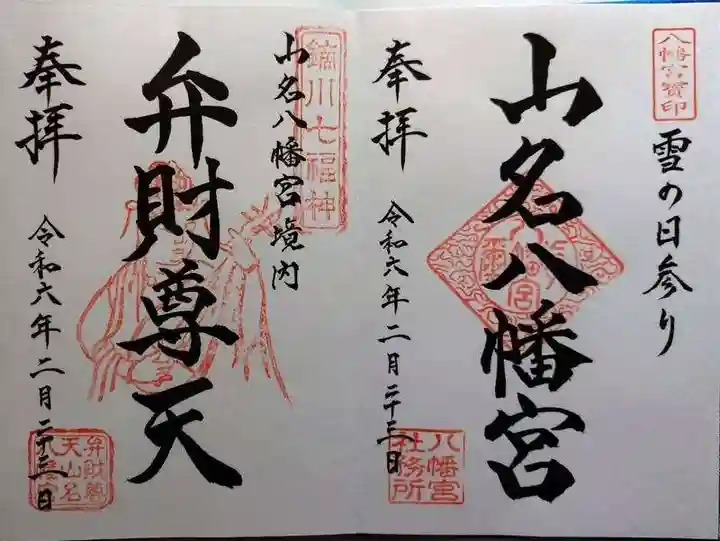 八幡宮寳印
雪の日参り
山名八幡宮
奉拝
令和六年二月二十三日
八幡宮
社務所
鏑川七福神
山名八幡宮境内
弁財尊天
奉拝
令和六年二月二十三日
弁財尊
天山名
八幡宮